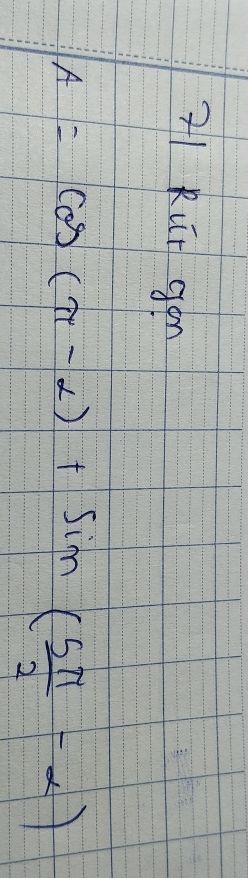 7/ Rút gọn
A = Cos (π - α) + Sin (5π/2 - α)